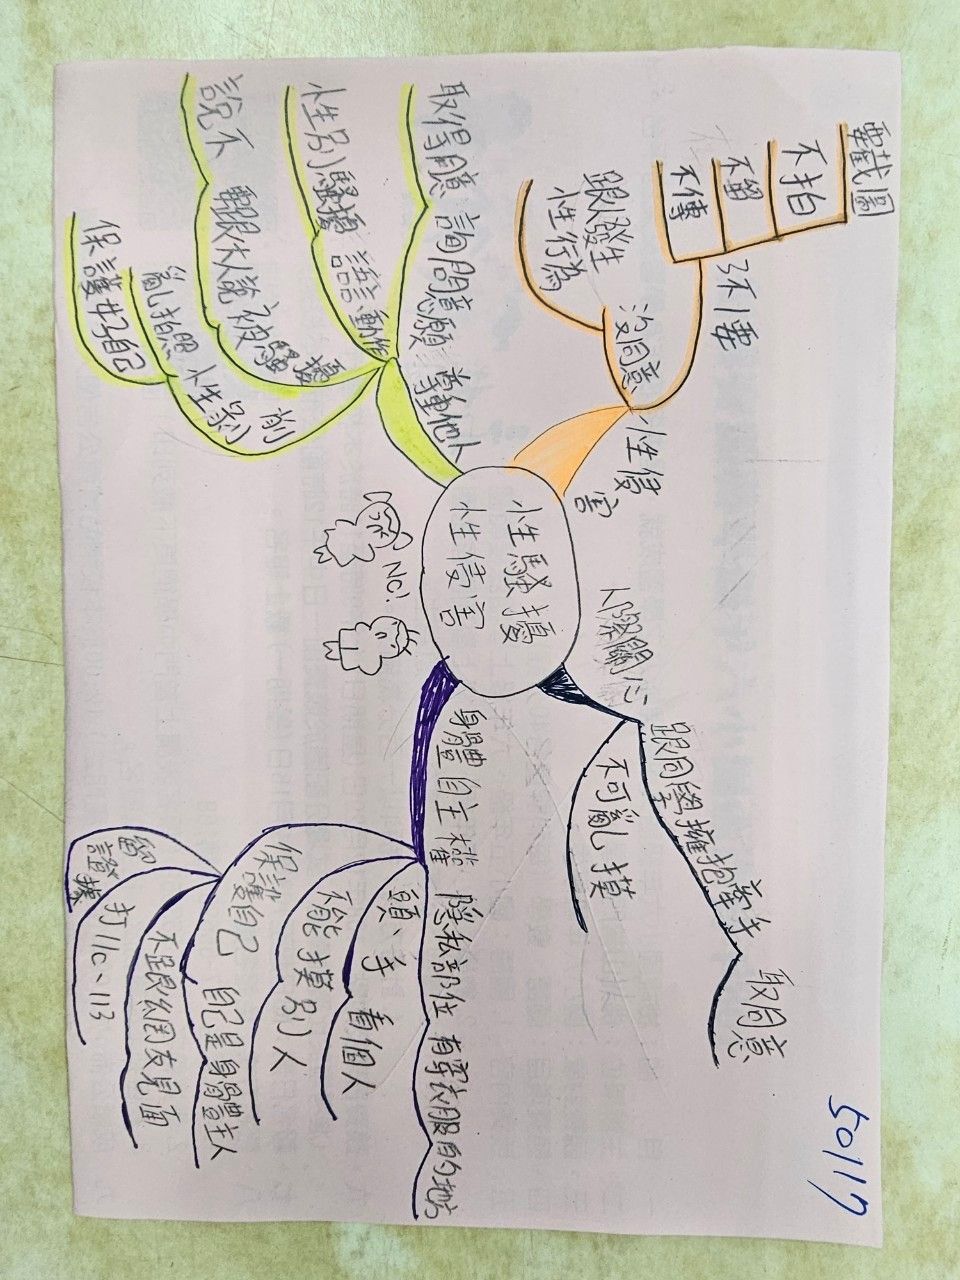 50117
性騷擾
性侵害
NO!
性侵害
不要
要截圖
不拍
不留
不傳
沒同意
跟發生
性行為
人際關心
跟同學擁抱牽手
取同意
不可亂摸
身體自主權
隱私部位
有穿衣服的地
頭、手
看個人
不能摸別人
保護自己
自己是身體主人
不足跟公園友見面
打110、113
留
證據
尊重他人
詢問意願
取得
性別騷擾
語言、動作
說不
跟大人說
被騷擾
性剝削
亂拍照
保護好自己